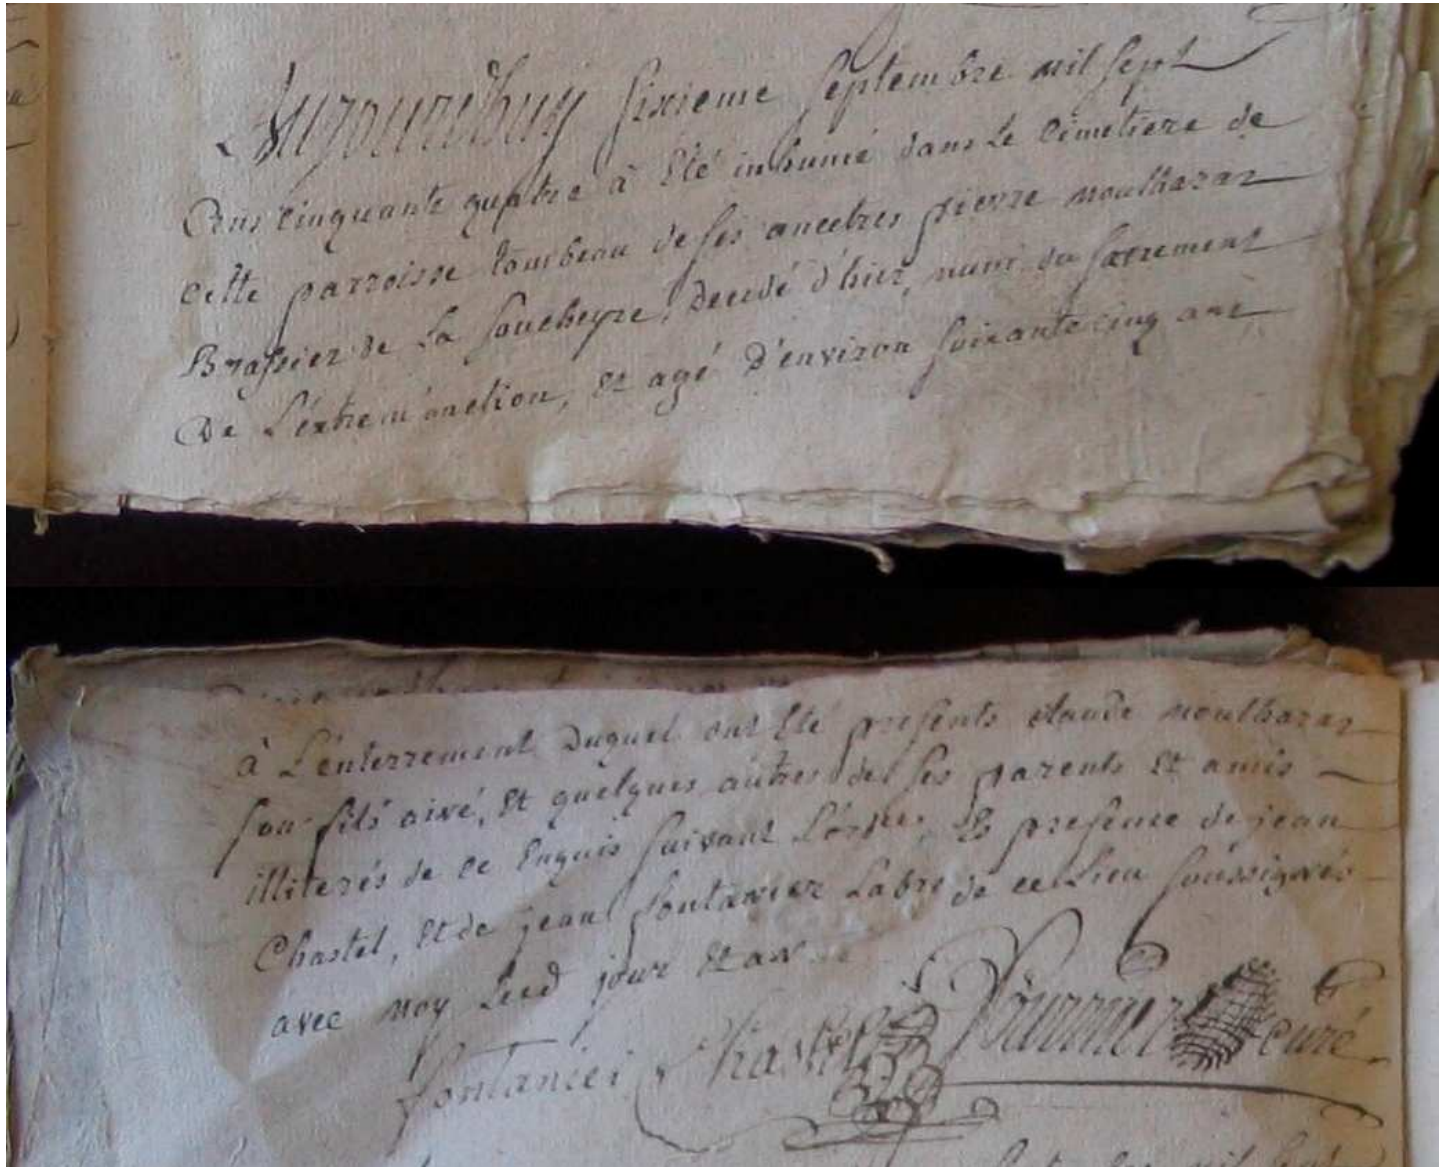 Aujourdhuy sixieme septembre mil sept
Cens cinquante quatre à Eté inhumé dans Le Cimetiere de
Cette parroisse tombeau de ses ancetres pierre moulharar
Brassier de La soucheyre, decedé d'hier, muni du sacrement
De L'extrem'onction, Et agé D'environ soixante cinq ans
à L'enterrement Duquel ont Eté presents claude moulharar
son fils ainé, Et quelques autres de ses parents Et amis
illiterés de ce Enquis suivant L'ordre, En presence de jean
Chastel, Et de jean fontanier Labrs de ce Lieu soussignés
avec moy Led jour Et an
fontanier Chastel fournier curé